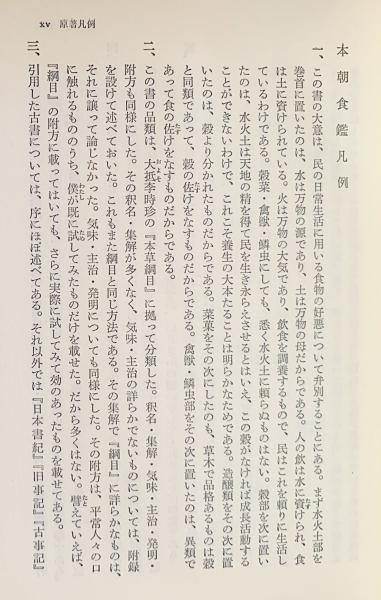 xv 原著凡例
本朝食鑑凡例
一、この書の大意は、民の日常生活に用いる食物の好悪について弁別することにある。まず水火土部を
巻首に置いたのは、水は万物の源であり、土は万物の母だからである。人の飲は水に資けられ、食
は土に資けられている。火は万物の大気であり、飲食を調養するもので、民はこれを頼りに生活し
ているわけである。穀菜・禽獣・鱗虫にしても、悉く水火土に頼らぬものはない。穀部を次に置い
たのは、水火土は天地の精を得て民を生き永らえさせるとはいえ、この穀がなければ成長活動する
ことができないわけで、これこそ養生の大本たることは明らかなためである。造醸類をその次に置
いたのは、穀より分かれたものだからである。菜菓をその次にしたのも、草木で品格あるものは穀
と同類であって、穀の佐けをなすものだからである。禽獣・鱗虫部をその次に置いたのは、異類で
あって食の佐けをなすものだからである。
二、この書の品類は、大抵李時珍の『本草綱目』に拠って分類した。釈名・集解・気味・主治・発明・
附方も同様にした。その釈名・集解が多くなく、気味・主治の詳らかでないものについては、附録
を設けて述べておいた。これもまた綱目と同じ方法である。その集解で『綱目』に詳らかなものは、
それに譲って論じなかった。気味・主治・発明についても同様にした。その附方は、平常人々の口
に触れるもののうち、僕が既に試してみたものだけを載せた。だから多くはない。譬えていえば、
『綱目』の附方に載ってはいても、さらに実際に試してみて効のあったものを載せてある。
三、引用した古書については、序にほぼ述べてある。それ以外では『日本書紀』『旧事記』『古事記』